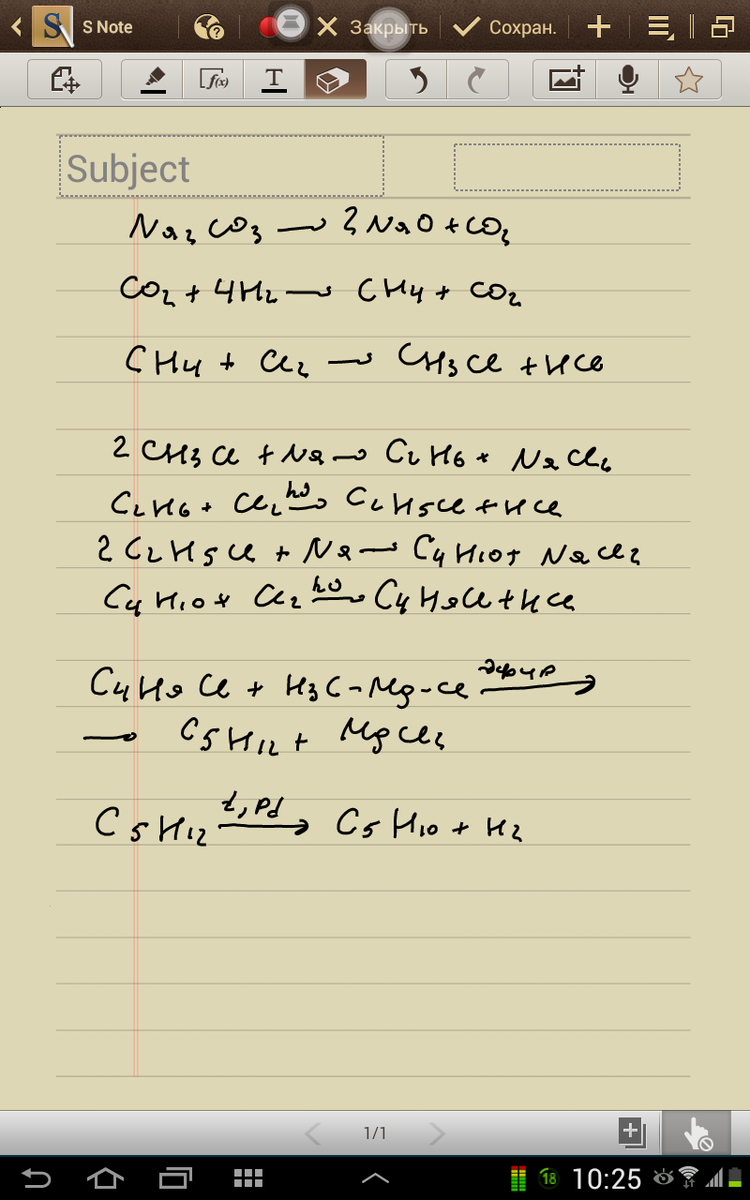 S Note
Закрыть
Сохран.
f(x)
T
Subject
Na₂CO₃ → 2NaO + CO₂
CO₂ + 4H₂ → CH₄ + CO₂
CH₄ + Cl₂ → CH₃Cl + HCl
2CH₃Cl + Na → C₂H₆ + NaCl₆
C₂H₆ + Cl₂ hν→ C₂H₅Cl + HCl
2C₂H₅Cl + Na → C₄H₁₀ + NaCl₂
C₄H₁₀ + Cl₂ hν→ C₄H₉Cl + HCl
C₄H₉Cl + H₃C-Mg-Cl эфир→
→ C₅H₁₂ + MgCl₂
C₅H₁₂ t, Pd→ C₅H₁₀ + H₂
1/1
18 10:25